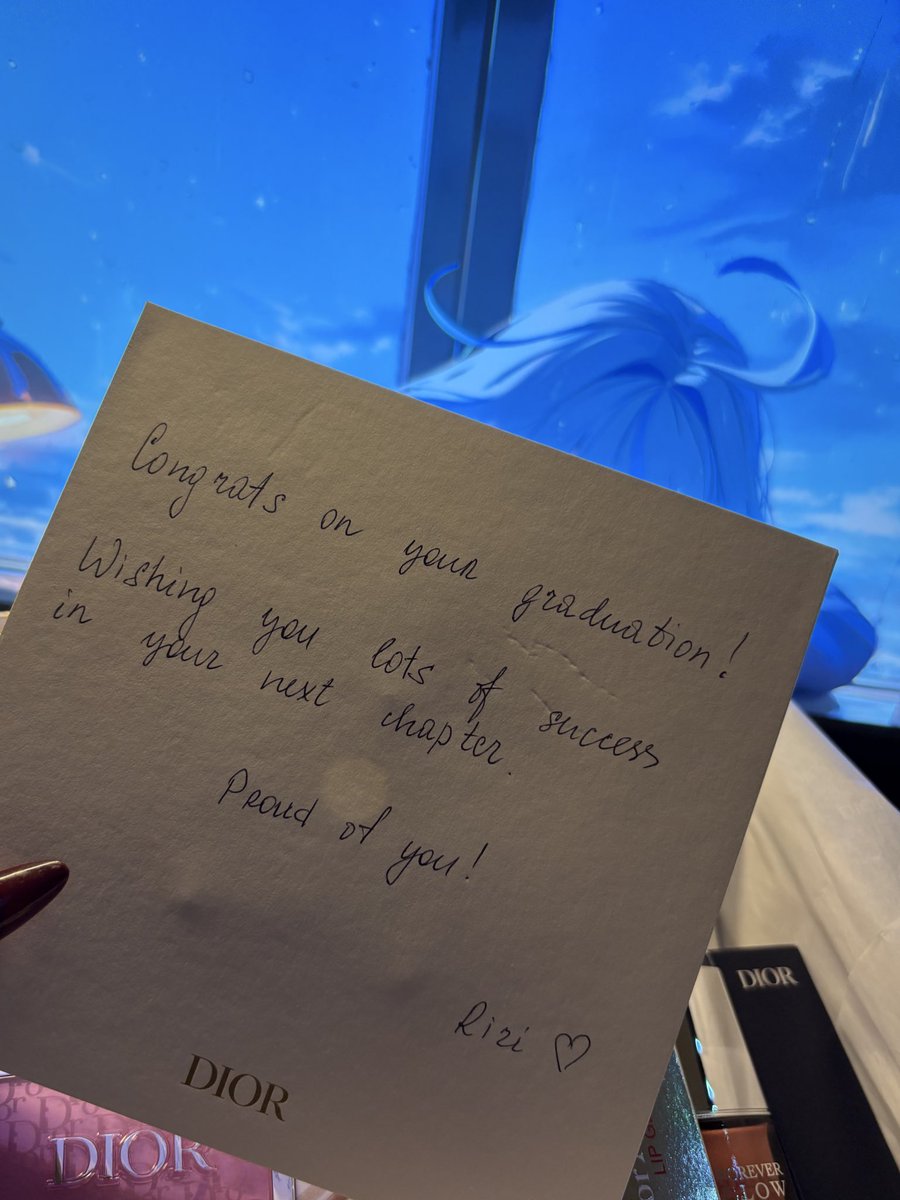 Congrats on your graduation!
Wishing you lots of success
in your next chapter.
Proud of you!
Rizi ♡
DIOR
DIOR
DIOR
LIP